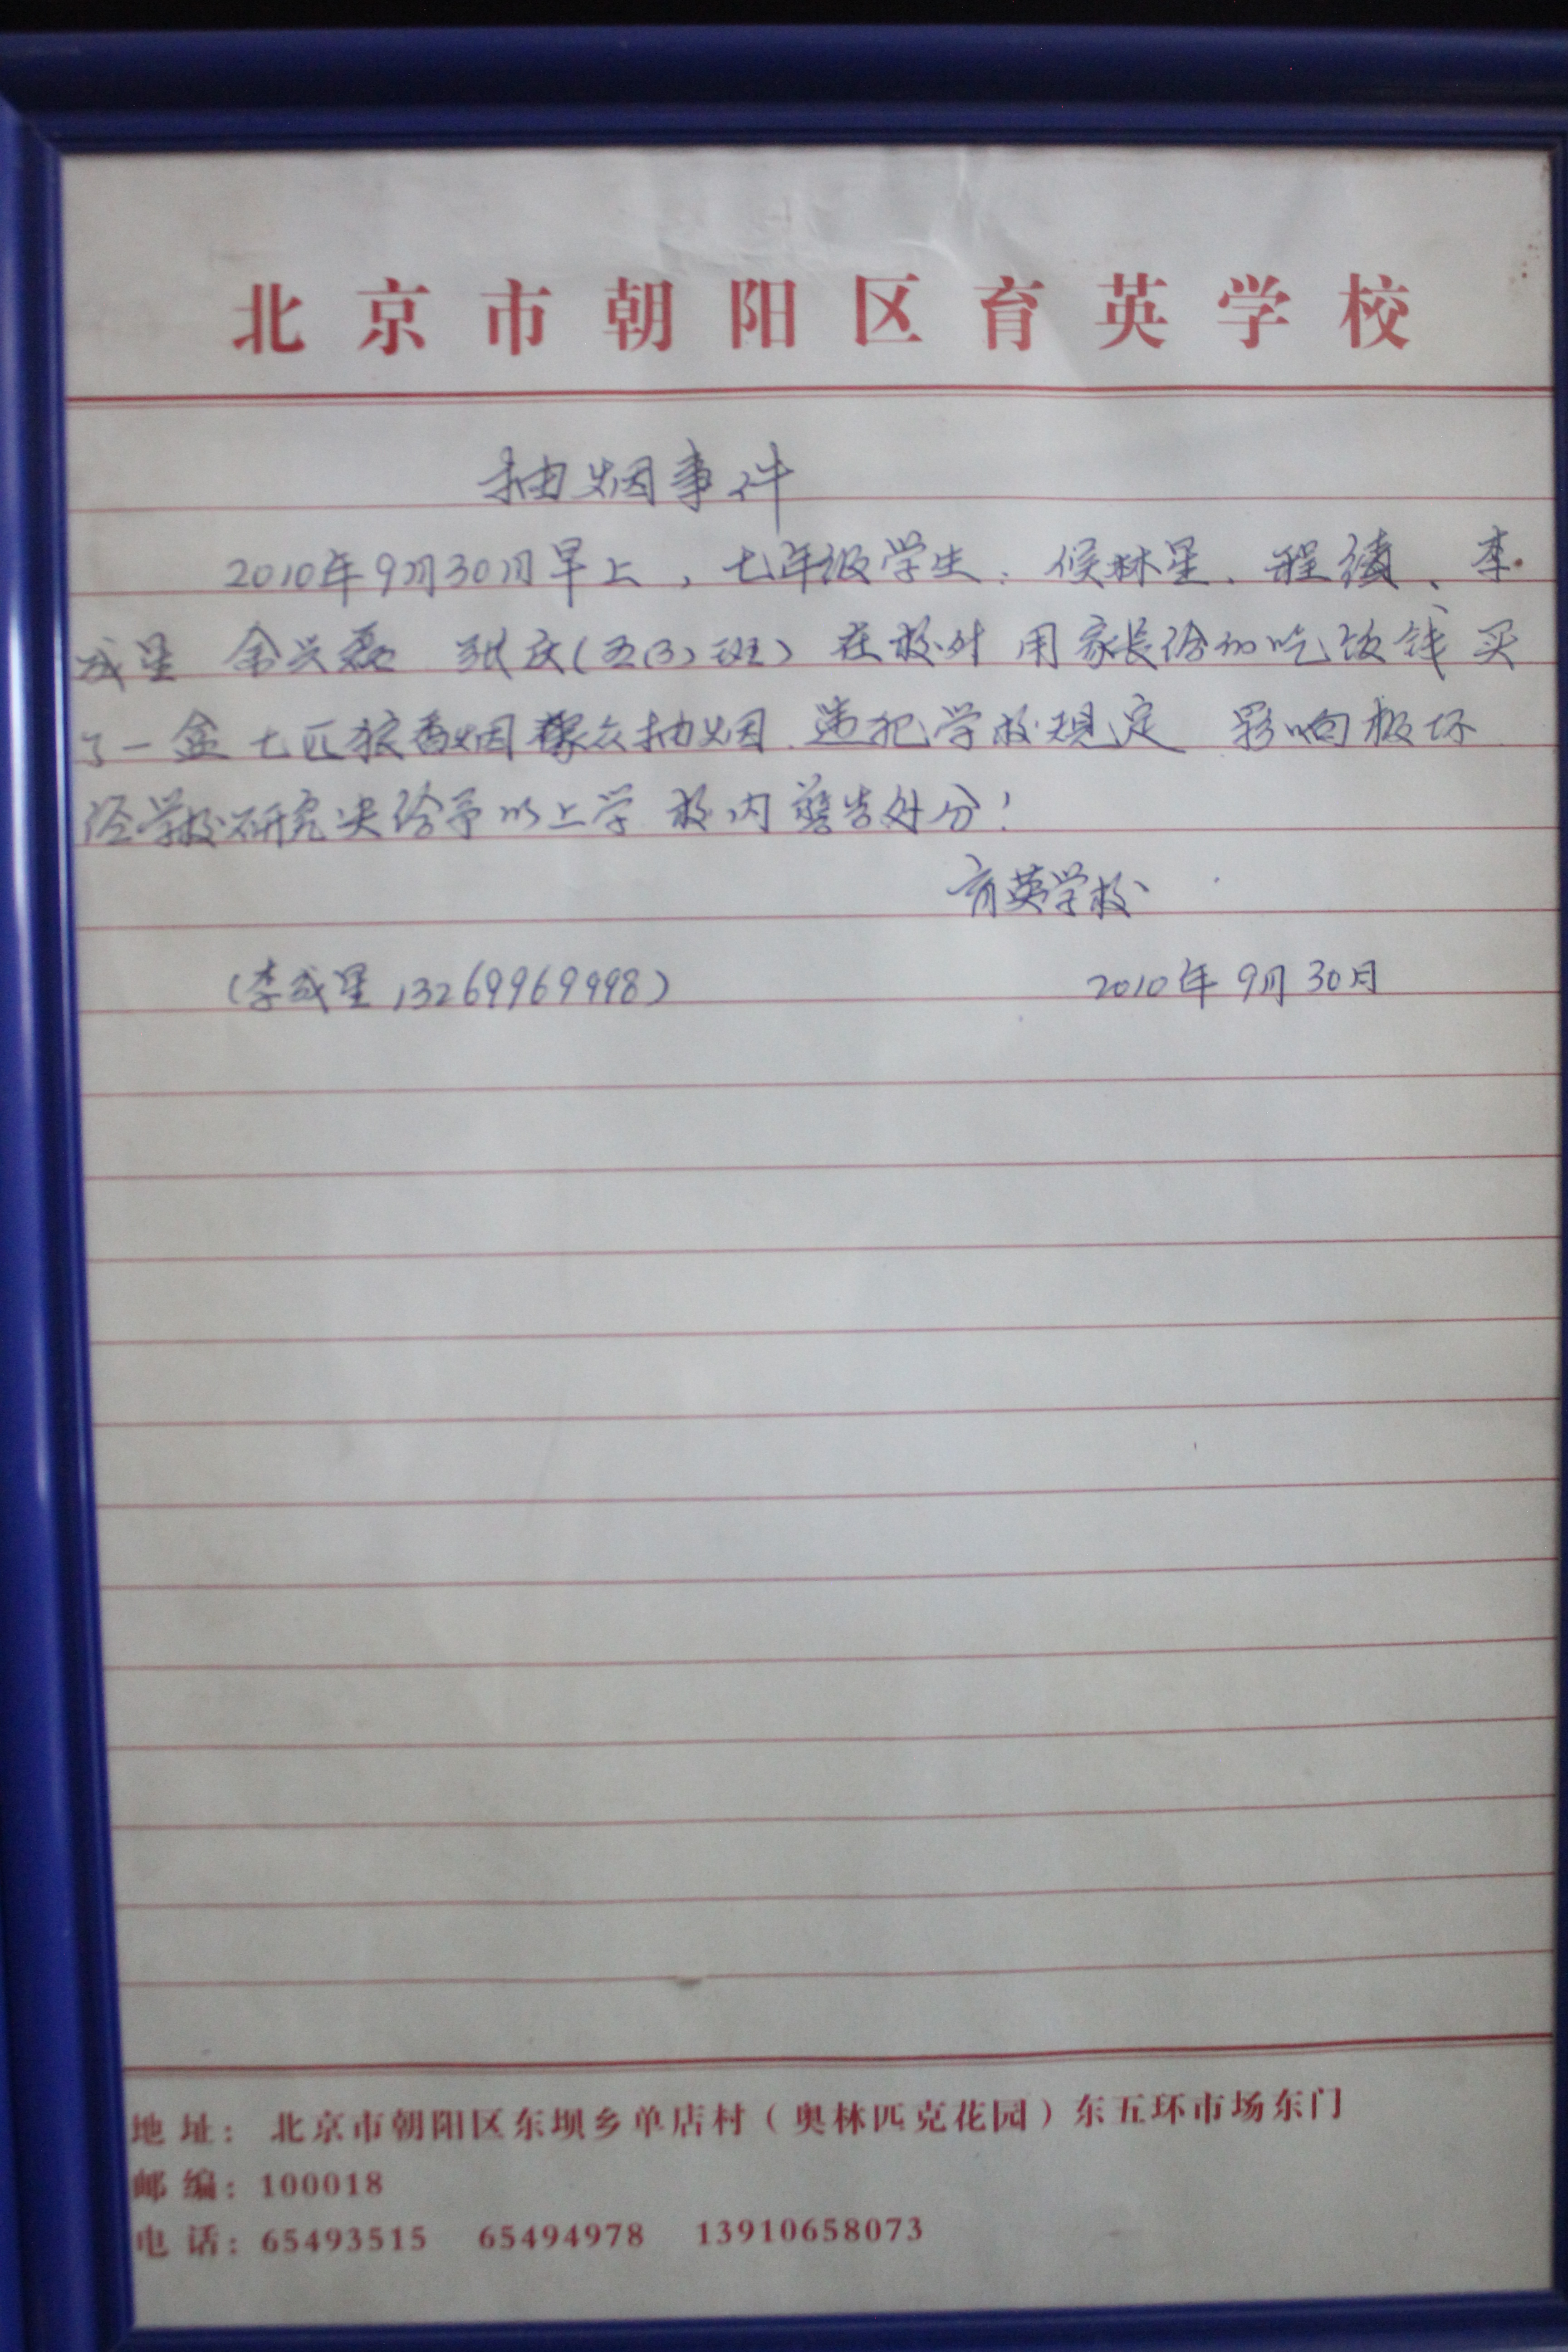 北京市朝阳区育英学校
抽烟事件
2010年9月30日早上，七年级学生：候林星、程绩、李
成星 金兴磊 张庆（五(3)班）在校外 用家长给的吃饭钱 买
了一盒七匹狼香烟聚众抽烟.违犯学校规定 影响极坏
经学校研究决给予以上学 校内警告处分！
育英学校
（李成星 13269969998） 2010年9月30日
地 址：北京市朝阳区东坝乡单店村（奥林匹克花园）东五环市场东门
邮 编：100018
电 话：65493515 65494978 13910658073